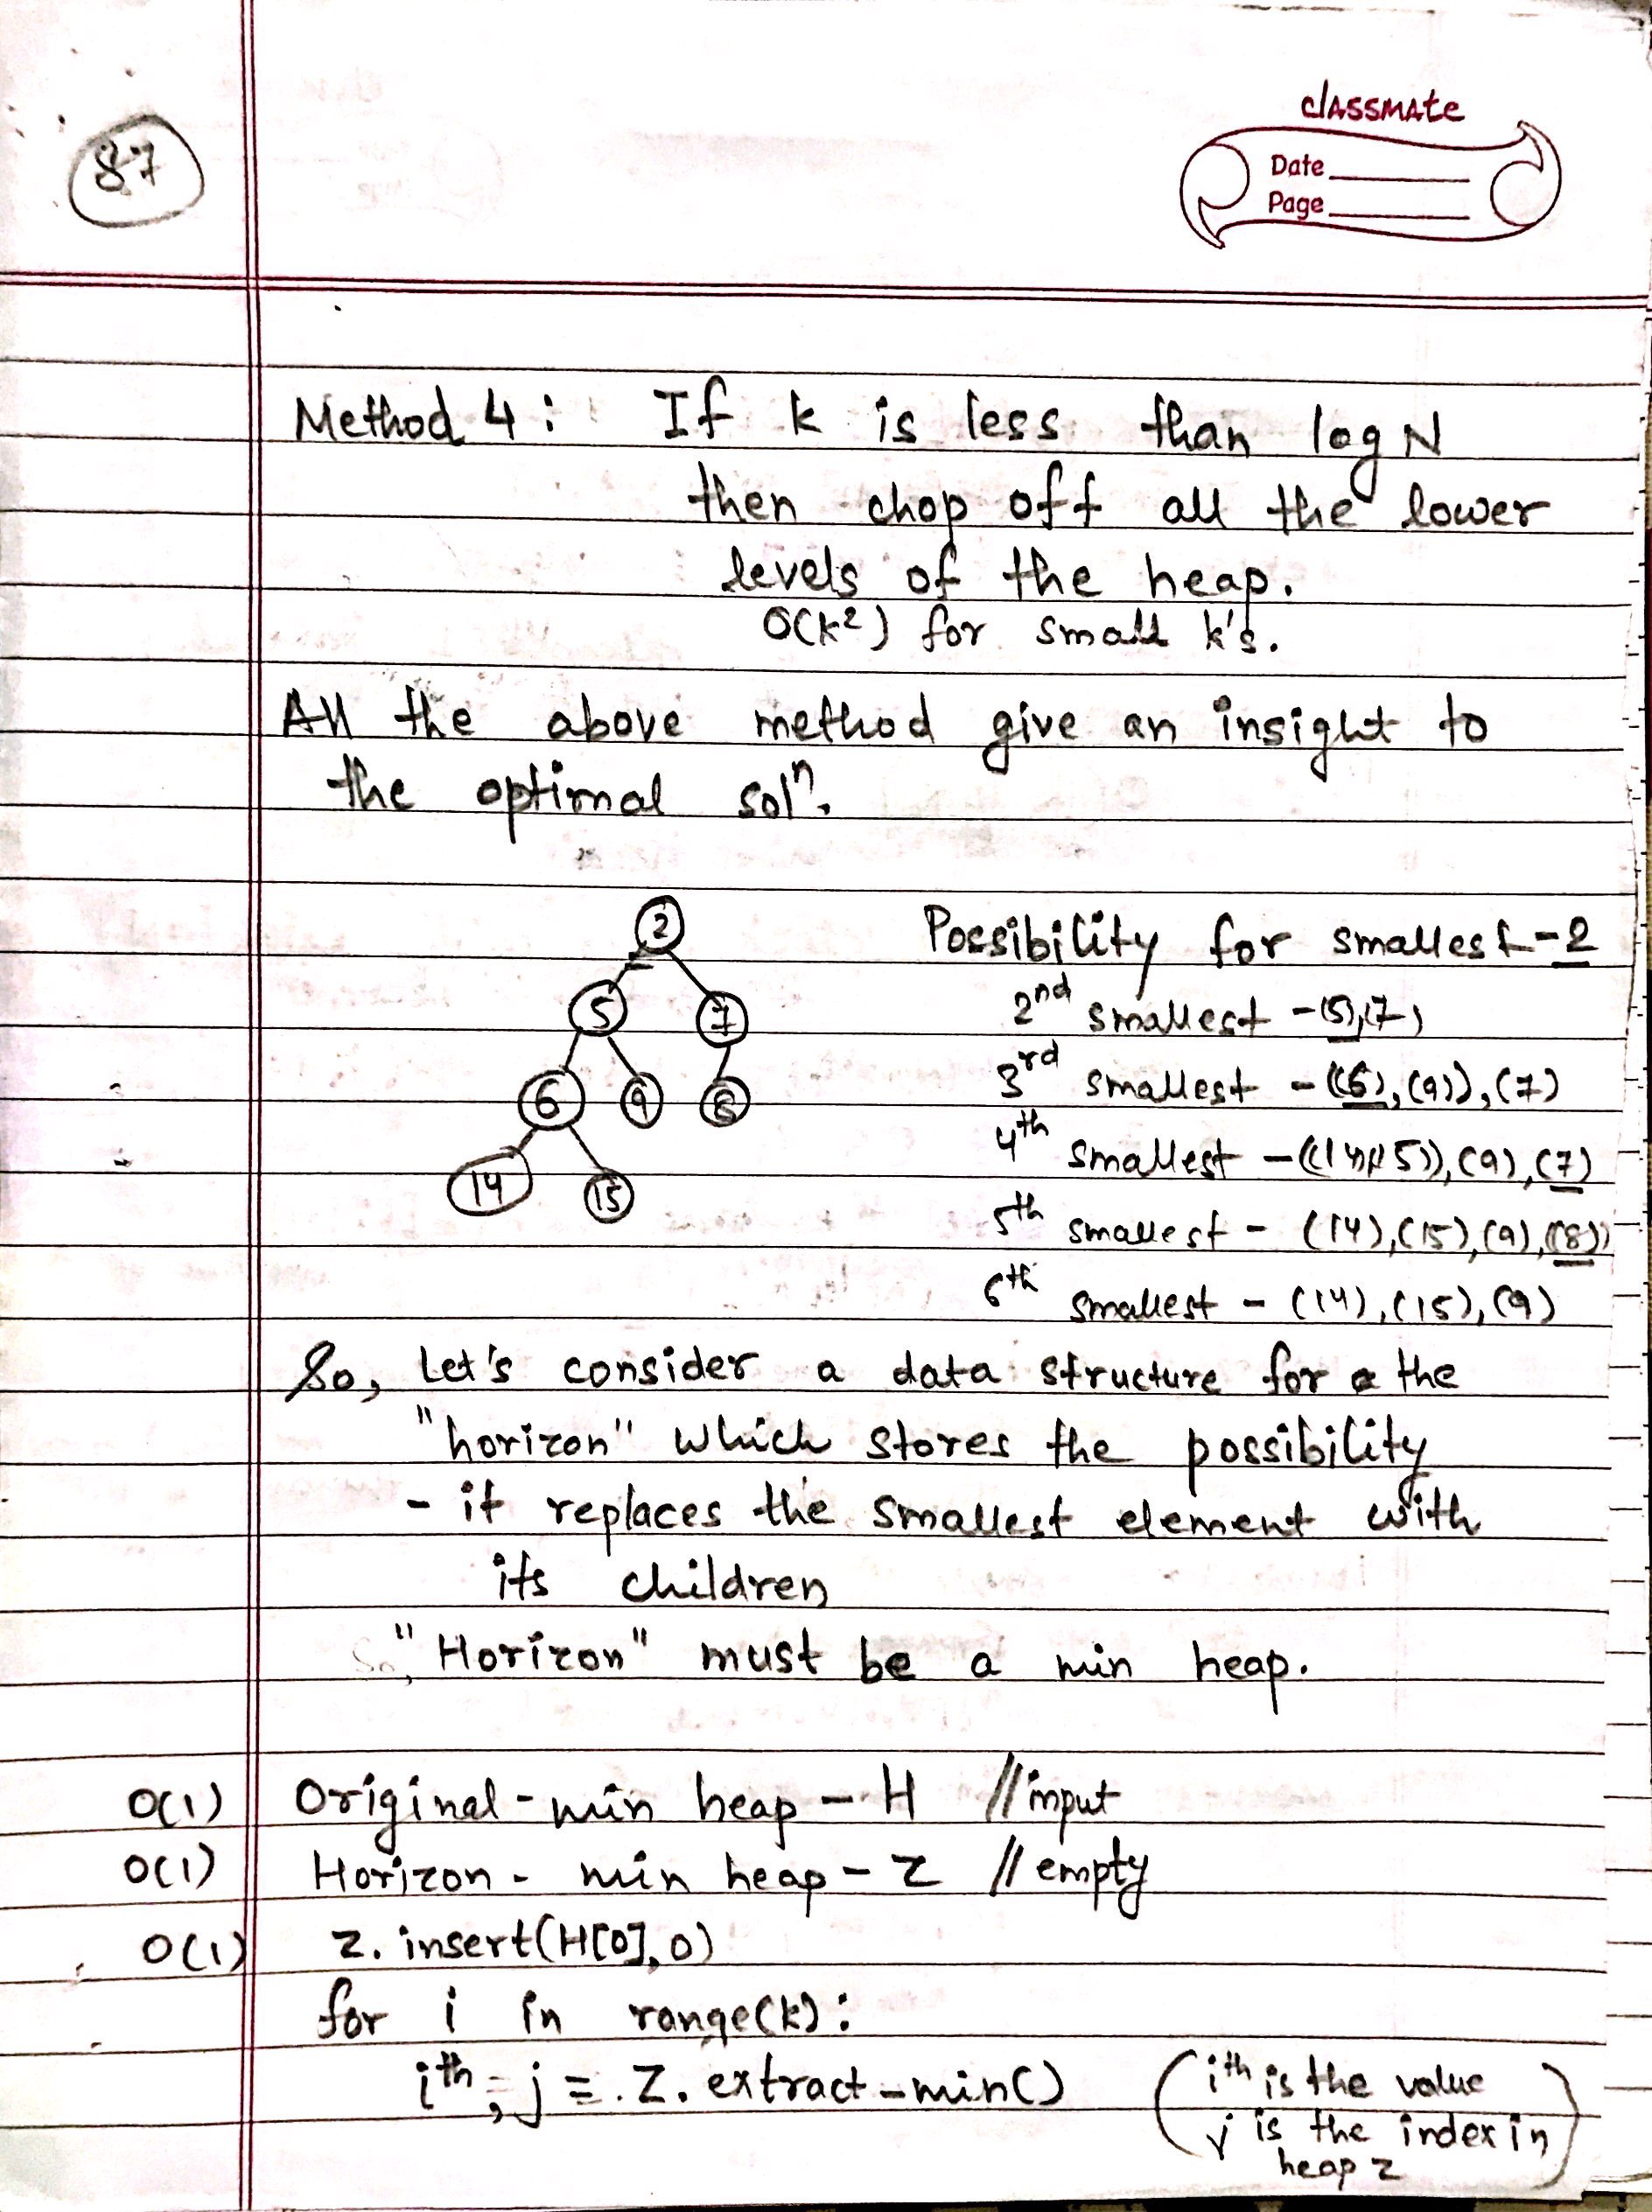 87
classmate
Date
Page
Method 4: If k is less than log N
then chop off all the lower
levels of the heap.
O(k²) for small k's.
All the above method give an insight to
the optimal solⁿ.
2
5 7
6 9 8
14 15
Possibility for smallest - 2
2nd smallest - (5),(7)
3rd smallest - ((6),(9)),(7)
4th smallest - ((14)(15)),(9),(7)
5th smallest - (14),(15),(9),((8))
6th smallest - (14),(15),(9)
So, Let's consider a data structure for the
"horizon" which stores the possibility
- it replaces the smallest element with
its children
"Horizon" must be a min heap.
O(1) Original - min heap - H //input
O(1) Horizon - min heap - Z // empty
O(1) Z.insert(H[0],0)
for i in range(k):
ith, j = Z.extract-min()
(ith is the value
j is the index in
heap z)